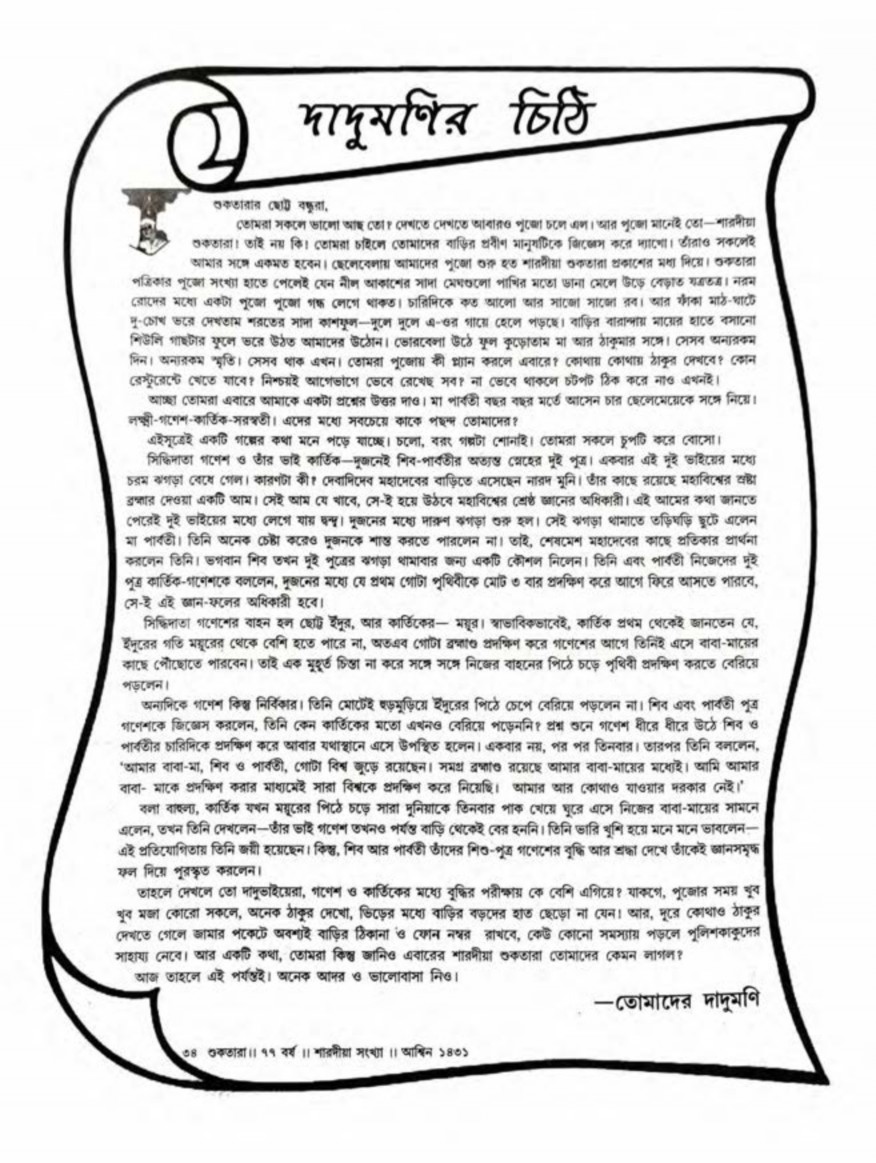 দাদুমণির চিঠি
শুকতারার ছোট্ট বন্ধুরা,
তোমরা সকলে ভালো আছ তো? দেখতে দেখতে আবারও পুজো চলে এল। আর পুজো মানেই তো—শারদীয়া
শুকতারা! তাই নয় কি। তোমরা চাইলে তোমাদের বাড়ির প্রবীণ মানুষটিকে জিজ্ঞেস করে দ্যাখো। তাঁরাও সকলেই
আমার সঙ্গে একমত হবেন। ছেলেবেলায় আমাদের পুজো শুরু হত শারদীয়া শুকতারা প্রকাশের মধ্য দিয়ে। শুকতারা
পত্রিকার পুজো সংখ্যা হাতে পেলেই যেন নীল আকাশের সাদা মেঘগুলো পাখির মতো ডানা মেলে উড়ে বেড়াত যত্রতত্র। নরম
রোদের মধ্যে একটা পুজো পুজো গন্ধ লেগে থাকত। চারিদিকে কত আলো আর সাজো সাজো রব। আর ফাঁকা মাঠ-ঘাটে
দু-চোখ ভরে দেখতাম শরতের সাদা কাশফুল—দুলে দুলে এ-ওর গায়ে হেলে পড়ছে। বাড়ির বারান্দায় মায়ের হাতে বসানো
শিউলি গাছটার ফুলে ভরে উঠত আমাদের উঠোন। ভোরবেলা উঠে ফুল কুড়োতাম মা আর ঠাকুমার সঙ্গে। সেসব অন্যরকম
দিন। অন্যরকম স্মৃতি। সেসব থাক এখন। তোমরা পুজোয় কী প্ল্যান করলে এবারে? কোথায় কোথায় ঠাকুর দেখবে? কোন
রেস্টুরেন্টে খেতে যাবে? নিশ্চয়ই আগেভাগে ভেবে রেখেছ সব? না ভেবে থাকলে চটপট ঠিক করে নাও এখনই।
আচ্ছা তোমরা এবারে আমাকে একটা প্রশ্নের উত্তর দাও। মা পার্বতী বছর বছর মর্তে আসেন চার ছেলেমেয়েকে সঙ্গে নিয়ে।
লক্ষ্মী-গণেশ-কার্তিক-সরস্বতী। এদের মধ্যে সবচেয়ে কাকে পছন্দ তোমাদের?
এইসূত্রেই একটি গল্পের কথা মনে পড়ে যাচ্ছে। চলো, বরং গল্পটা শোনাই। তোমরা সকলে চুপটি করে বোসো।
সিদ্ধিদাতা গণেশ ও তাঁর ভাই কার্তিক—দুজনেই শিব-পার্বতীর অত্যন্ত স্নেহের দুই পুত্র। একবার এই দুই ভাইয়ের মধ্যে
চরম ঝগড়া বেধে গেল। কারণটা কী? দেবাদিদেব মহাদেবের বাড়িতে এসেছেন নারদ মুনি। তাঁর কাছে রয়েছে মহাবিশ্বের স্রষ্টা
ব্রহ্মার দেওয়া একটি আম। সেই আম যে খাবে, সে-ই হয়ে উঠবে মহাবিশ্বের শ্রেষ্ঠ জ্ঞানের অধিকারী। এই আমের কথা জানতে
পেরেই দুই ভাইয়ের মধ্যে লেগে যায় দ্বন্দ্ব। দুজনের মধ্যে দারুণ ঝগড়া শুরু হল। সেই ঝগড়া থামাতে তড়িঘড়ি ছুটে এলেন
মা পার্বতী। তিনি অনেক চেষ্টা করেও দুজনকে শান্ত করতে পারলেন না। তাই, শেষমেশ মহাদেবের কাছে প্রতিকার প্রার্থনা
করলেন তিনি। ভগবান শিব তখন দুই পুত্রের ঝগড়া থামাবার জন্য একটি কৌশল নিলেন। তিনি এবং পার্বতী নিজেদের দুই
পুত্র কার্তিক-গণেশকে বললেন, দুজনের মধ্যে যে প্রথম গোটা পৃথিবীকে মোট ৩ বার প্রদক্ষিণ করে আগে ফিরে আসতে পারবে,
সে-ই এই জ্ঞান-ফলের অধিকারী হবে।
সিদ্ধিদাতা গণেশের বাহন হল ছোট্ট ইঁদুর, আর কার্তিকের— ময়ূর। স্বাভাবিকভাবেই, কার্তিক প্রথম থেকেই জানতেন যে,
ইঁদুরের গতি ময়ূরের থেকে বেশি হতে পারে না, অতএব গোটা ব্রহ্মাণ্ড প্রদক্ষিণ করে গণেশের আগে তিনিই এসে বাবা-মায়ের
কাছে পৌঁছোতে পারবেন। তাই এক মুহূর্ত চিন্তা না করে সঙ্গে সঙ্গে নিজের বাহনের পিঠে চড়ে পৃথিবী প্রদক্ষিণ করতে বেরিয়ে
পড়লেন।
অন্যদিকে গণেশ কিন্তু নির্বিকার। তিনি মোটেই হুড়মুড়িয়ে ইঁদুরের পিঠে চেপে বেরিয়ে পড়লেন না। শিব এবং পার্বতী পুত্র
গণেশকে জিজ্ঞেস করলেন, তিনি কেন কার্তিকের মতো এখনও বেরিয়ে পড়েননি? প্রশ্ন শুনে গণেশ ধীরে ধীরে উঠে শিব ও
পার্বতীর চারিদিকে প্রদক্ষিণ করে আবার যথাস্থানে এসে উপস্থিত হলেন। একবার নয়, পর পর তিনবার। তারপর তিনি বললেন,
‘আমার বাবা-মা, শিব ও পার্বতী, গোটা বিশ্ব জুড়ে রয়েছেন। সমগ্র ব্রহ্মাণ্ড রয়েছে আমার বাবা-মায়ের মধ্যেই। আমি আমার
বাবা- মাকে প্রদক্ষিণ করার মাধ্যমেই সারা বিশ্বকে প্রদক্ষিণ করে নিয়েছি। আমার আর কোথাও যাওয়ার দরকার নেই।’
বলা বাহুল্য, কার্তিক যখন ময়ূরের পিঠে চড়ে সারা দুনিয়াকে তিনবার পাক খেয়ে ঘুরে এসে নিজের বাবা-মায়ের সামনে
এলেন, তখন তিনি দেখলেন—তাঁর ভাই গণেশ তখনও পর্যন্ত বাড়ি থেকেই বের হননি। তিনি ভারি খুশি হয়ে মনে মনে ভাবলেন—
এই প্রতিযোগিতায় তিনি জয়ী হয়েছেন। কিন্তু, শিব আর পার্বতী তাঁদের শিশু-পুত্র গণেশের বুদ্ধি আর শ্রদ্ধা দেখে তাঁকেই জ্ঞানসমৃদ্ধ
ফল দিয়ে পুরস্কৃত করলেন।
তাহলে দেখলে তো দাদুভাইয়েরা, গণেশ ও কার্তিকের মধ্যে বুদ্ধির পরীক্ষায় কে বেশি এগিয়ে? যাকগে, পুজোর সময় খুব
খুব মজা কোরো সকলে, অনেক ঠাকুর দেখো, ভিড়ের মধ্যে বাড়ির বড়দের হাত ছেড়ো না যেন। আর, দূরে কোথাও ঠাকুর
দেখতে গেলে জামার পকেটে অবশ্যই বাড়ির ঠিকানা ও ফোন নম্বর রাখবে, কেউ কোনো সমস্যায় পড়লে পুলিশকাকুদের
সাহায্য নেবে। আর একটি কথা, তোমরা কিন্তু জানিও এবারের শারদীয়া শুকতারা তোমাদের কেমন লাগল?
আজ তাহলে এই পর্যন্তই। অনেক আদর ও ভালোবাসা নিও।
—তোমাদের দাদুমণি
৩৪ শুকতারা।। ৭৭ বর্ষ ।। শারদীয়া সংখ্যা ।। আশ্বিন ১৪৩১